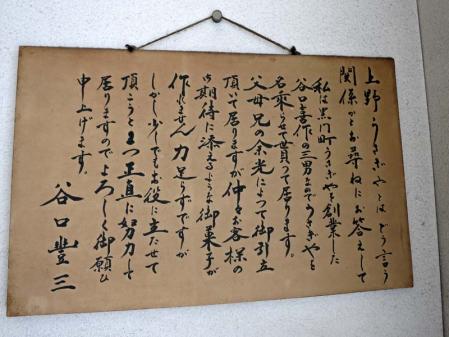 上野うさぎやとはどう言う
関係かとお尋ねにお答えして
私は黒門町うさぎやを創業した
谷口喜作の三男なのでうさぎやと
名乗らせて貰って居ります。
父母兄の余光によって御引立
頂いて居りますが仲々お客様の
御期待に添えるような御菓子が
作れません力足らずですが
しかし少しでもお役に立たせて
頂こうと正直に努力して
居りますのでよろしく御願ひ
申上げます。
谷口豐三